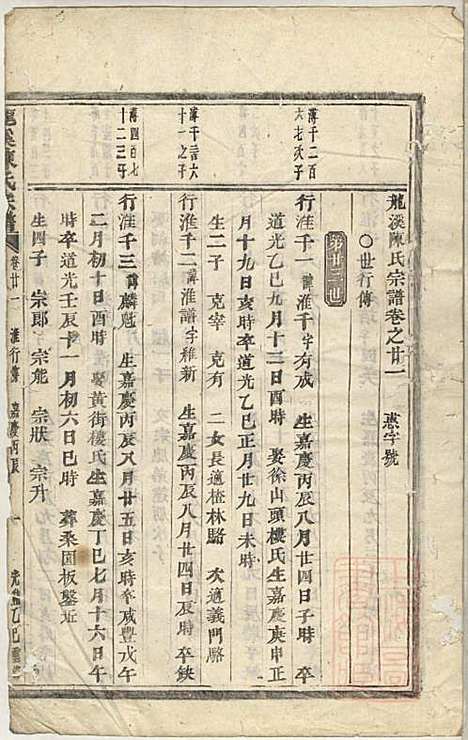 龍溪陳氏宗譜卷之廿一 惠字號
〇世行傳
第廿三世
溥千二百
六七次子
行淮千一 諱淮千字有成 生嘉慶丙辰八月廿四日子時 卒
道光乙巳九月十三日酉時 娶徐山頭樓氏生嘉慶庚申正
月十九日亥時卒道光乙巳正月廿九日未時
溥千二百六
十一之子
行淮千二 諱淮譜字維新 生嘉慶丙辰八月廿四日辰時 卒缺
生二子 克宰 克有 二女長適楂林駱 次適義門駱
溥四百七
十二三子
行淮千三 諱麟魁 生嘉慶丙辰八月廿五日亥時卒咸豐戊午
二月初十日酉時 娶黄街樓氏生嘉慶丁巳七月十六日午
時卒道光壬辰十一月初六日巳時 葬桑園板鏧近
生四子 宗郎 宗能 宗狀 宗升
龍溪陳氏宗譜 卷廿一 淮行傳 嘉慶丙辰 一 光緒乙巳重